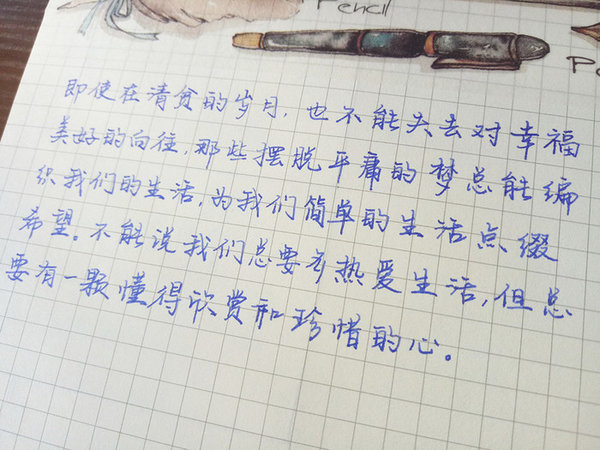 Pencil
即使在清贫的岁月,也不能失去对幸福
美好的向往,那些摆脱平庸的梦总能编
织我们的生活,为我们简单的生活点缀
希望。不能说我们总要多热爱生活,但总
要有一颗懂得欣赏和珍惜的心。